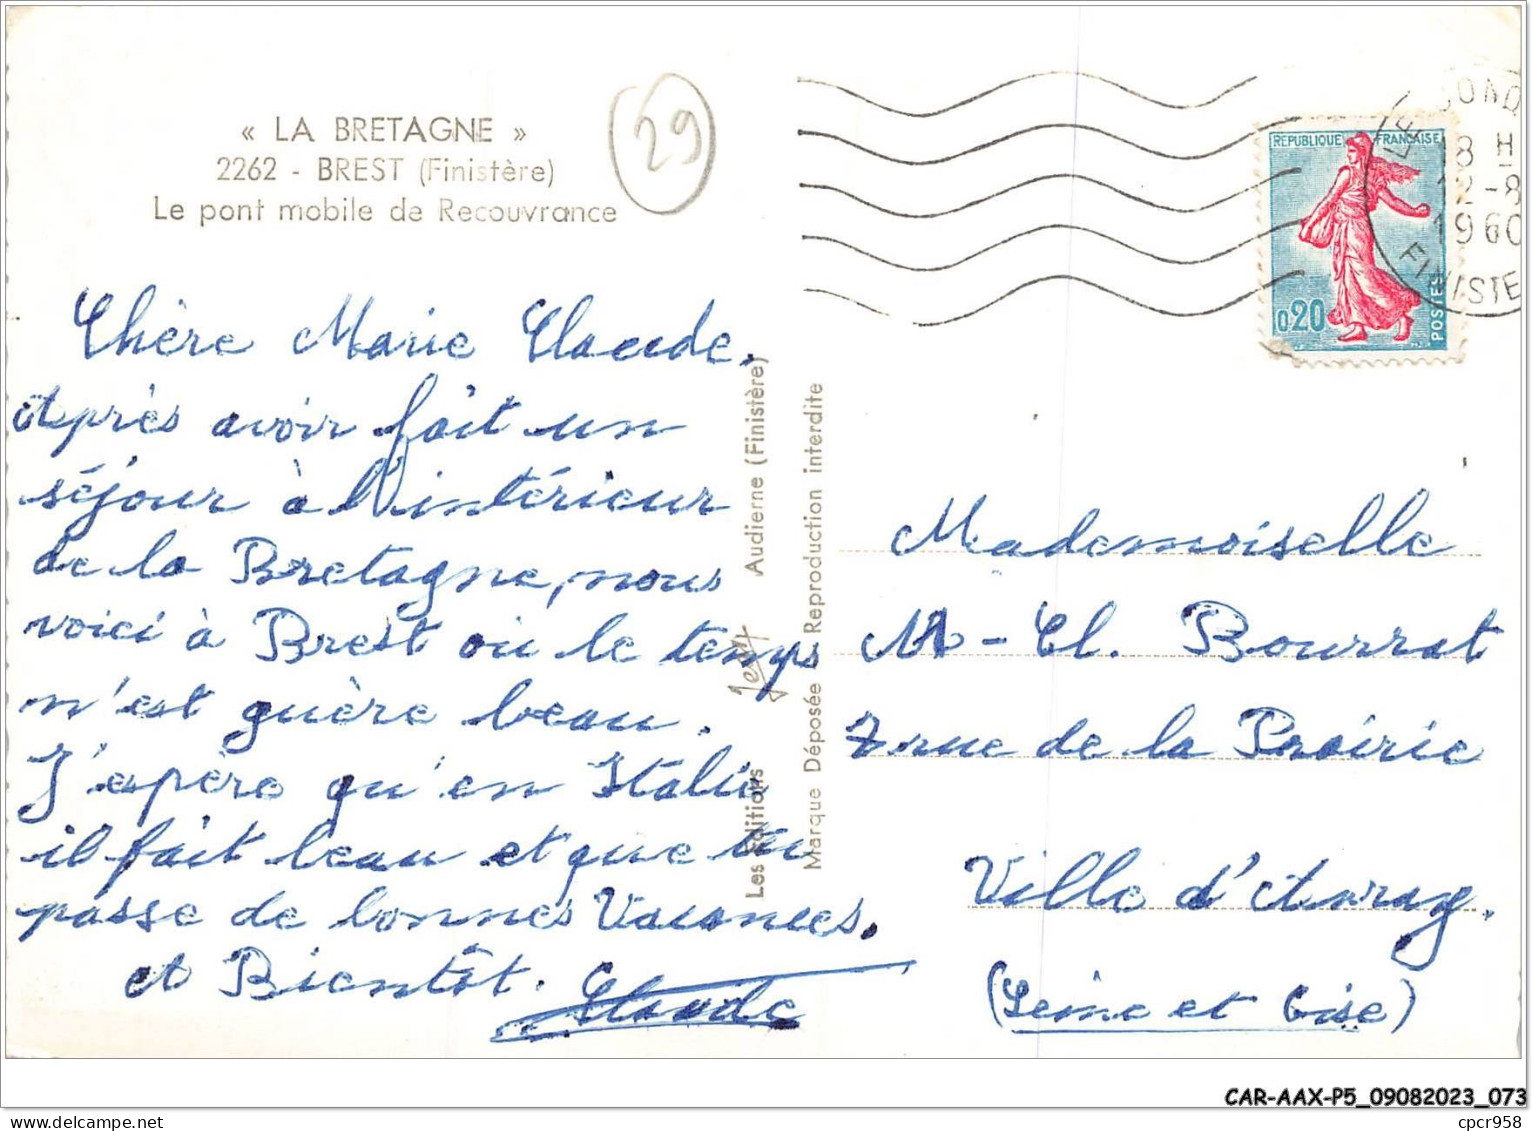 « LA BRETAGNE »
2262 - BREST (Finistère)
Le pont mobile de Recouvrance
29
Chère Marie Claude.
Après avoir fait un
séjour à l'intérieur
de la Bretagne, nous
voici à Brest où le temps
n'est guère beau.
J'espère qu'en Italie
il fait beau et que tu
passe de bonnes Vacances.
et Bientôt.
Claude
Les Editions Jack Audierne (Finistère)
Marque Déposée Reproduction interdite
REPUBLIQUE FRANCAISE
0,20
POSTES
LE CONQ
18 H
12-8
1960
FINISTE
Mademoiselle
M-Cl. Bourrat
7 rue de la Prairie
Ville d'Avray.
(Seine et Oise)
CAR-AAX-P5_09082023_073
www.delcampe.net
cpcr958